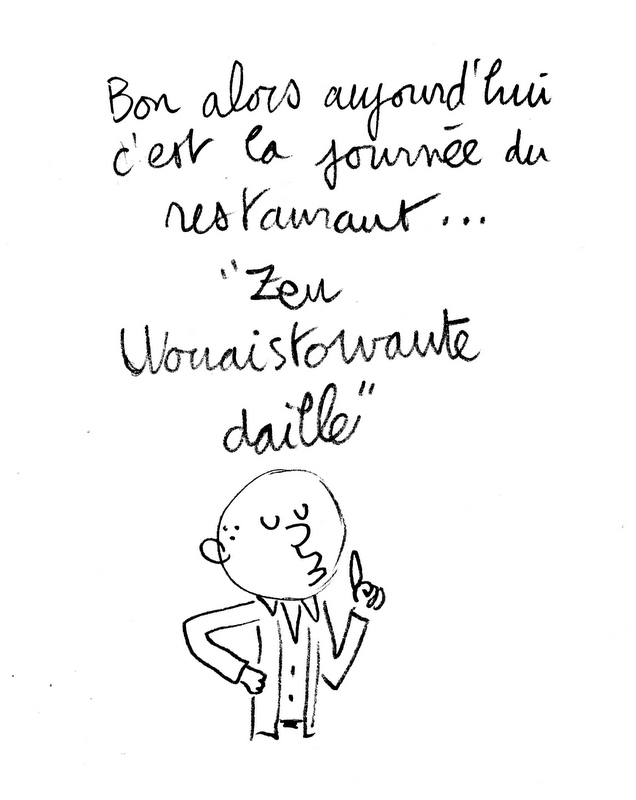 Bon alors aujourd'hui
c'est la journée du
restaurant...
"Zeu
Wouaistowante
daille"